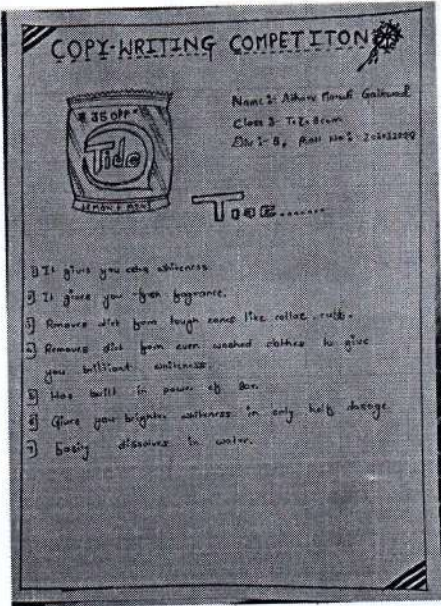 COPY-WRITING COMPETITON
₹ 35 OFF
Tide
LEMON & MINT
Class :- T.Y.B.com
Div :- B, Roll No :-
TIDE.......
1) It gives you extra whiteness.
2) It gives you fresh fragrance.
3) Removes dirt from tough zones like collar, cuffs.
4) Removes dirt from even washed clothes to give
you brilliant whiteness.
5) Has built in power of Bar.
6) Gives you brighter whiteness in only half dosage.
7) Easily dissolves in water.